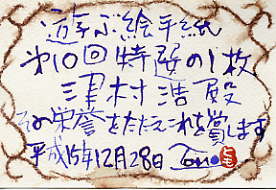 遊ぶ絵手紙
第10回特選の1枚
津村浩殿
その栄誉をたたえこれを賞します
平成15年12月28日